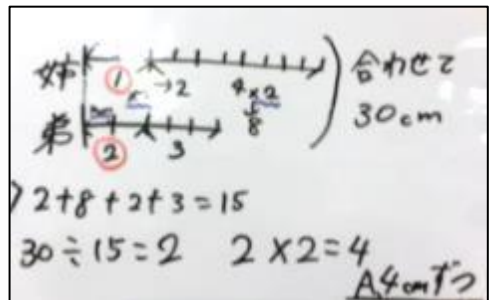 姉 ① →2 4×2
8
合わせて
30cm
弟 ② 3
2+8+2+3=15
30÷15=2 2×2=4
A.4cmずつ